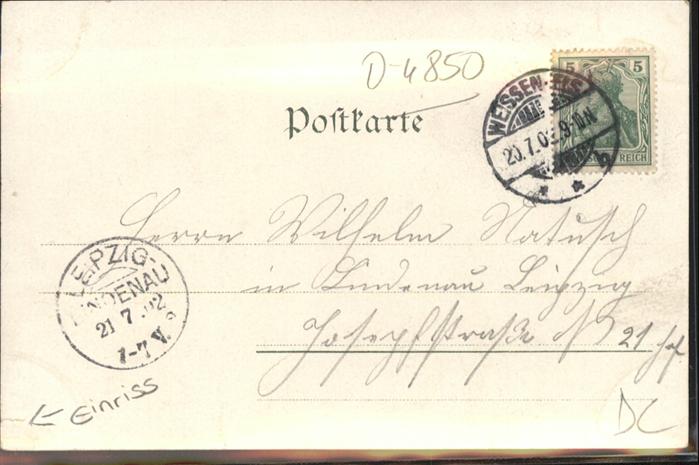 D-4850
5 5
Postkarte
WEISSENFELS
20.7.02 9-10N
REICH
b
Herrn Wilhelm Natusch
in Lindenau Leipzig
Josephstraße № 21 Hof
LEIPZIG-
LINDENAU
21 7 02
1-7 V.
← Einriss
DC